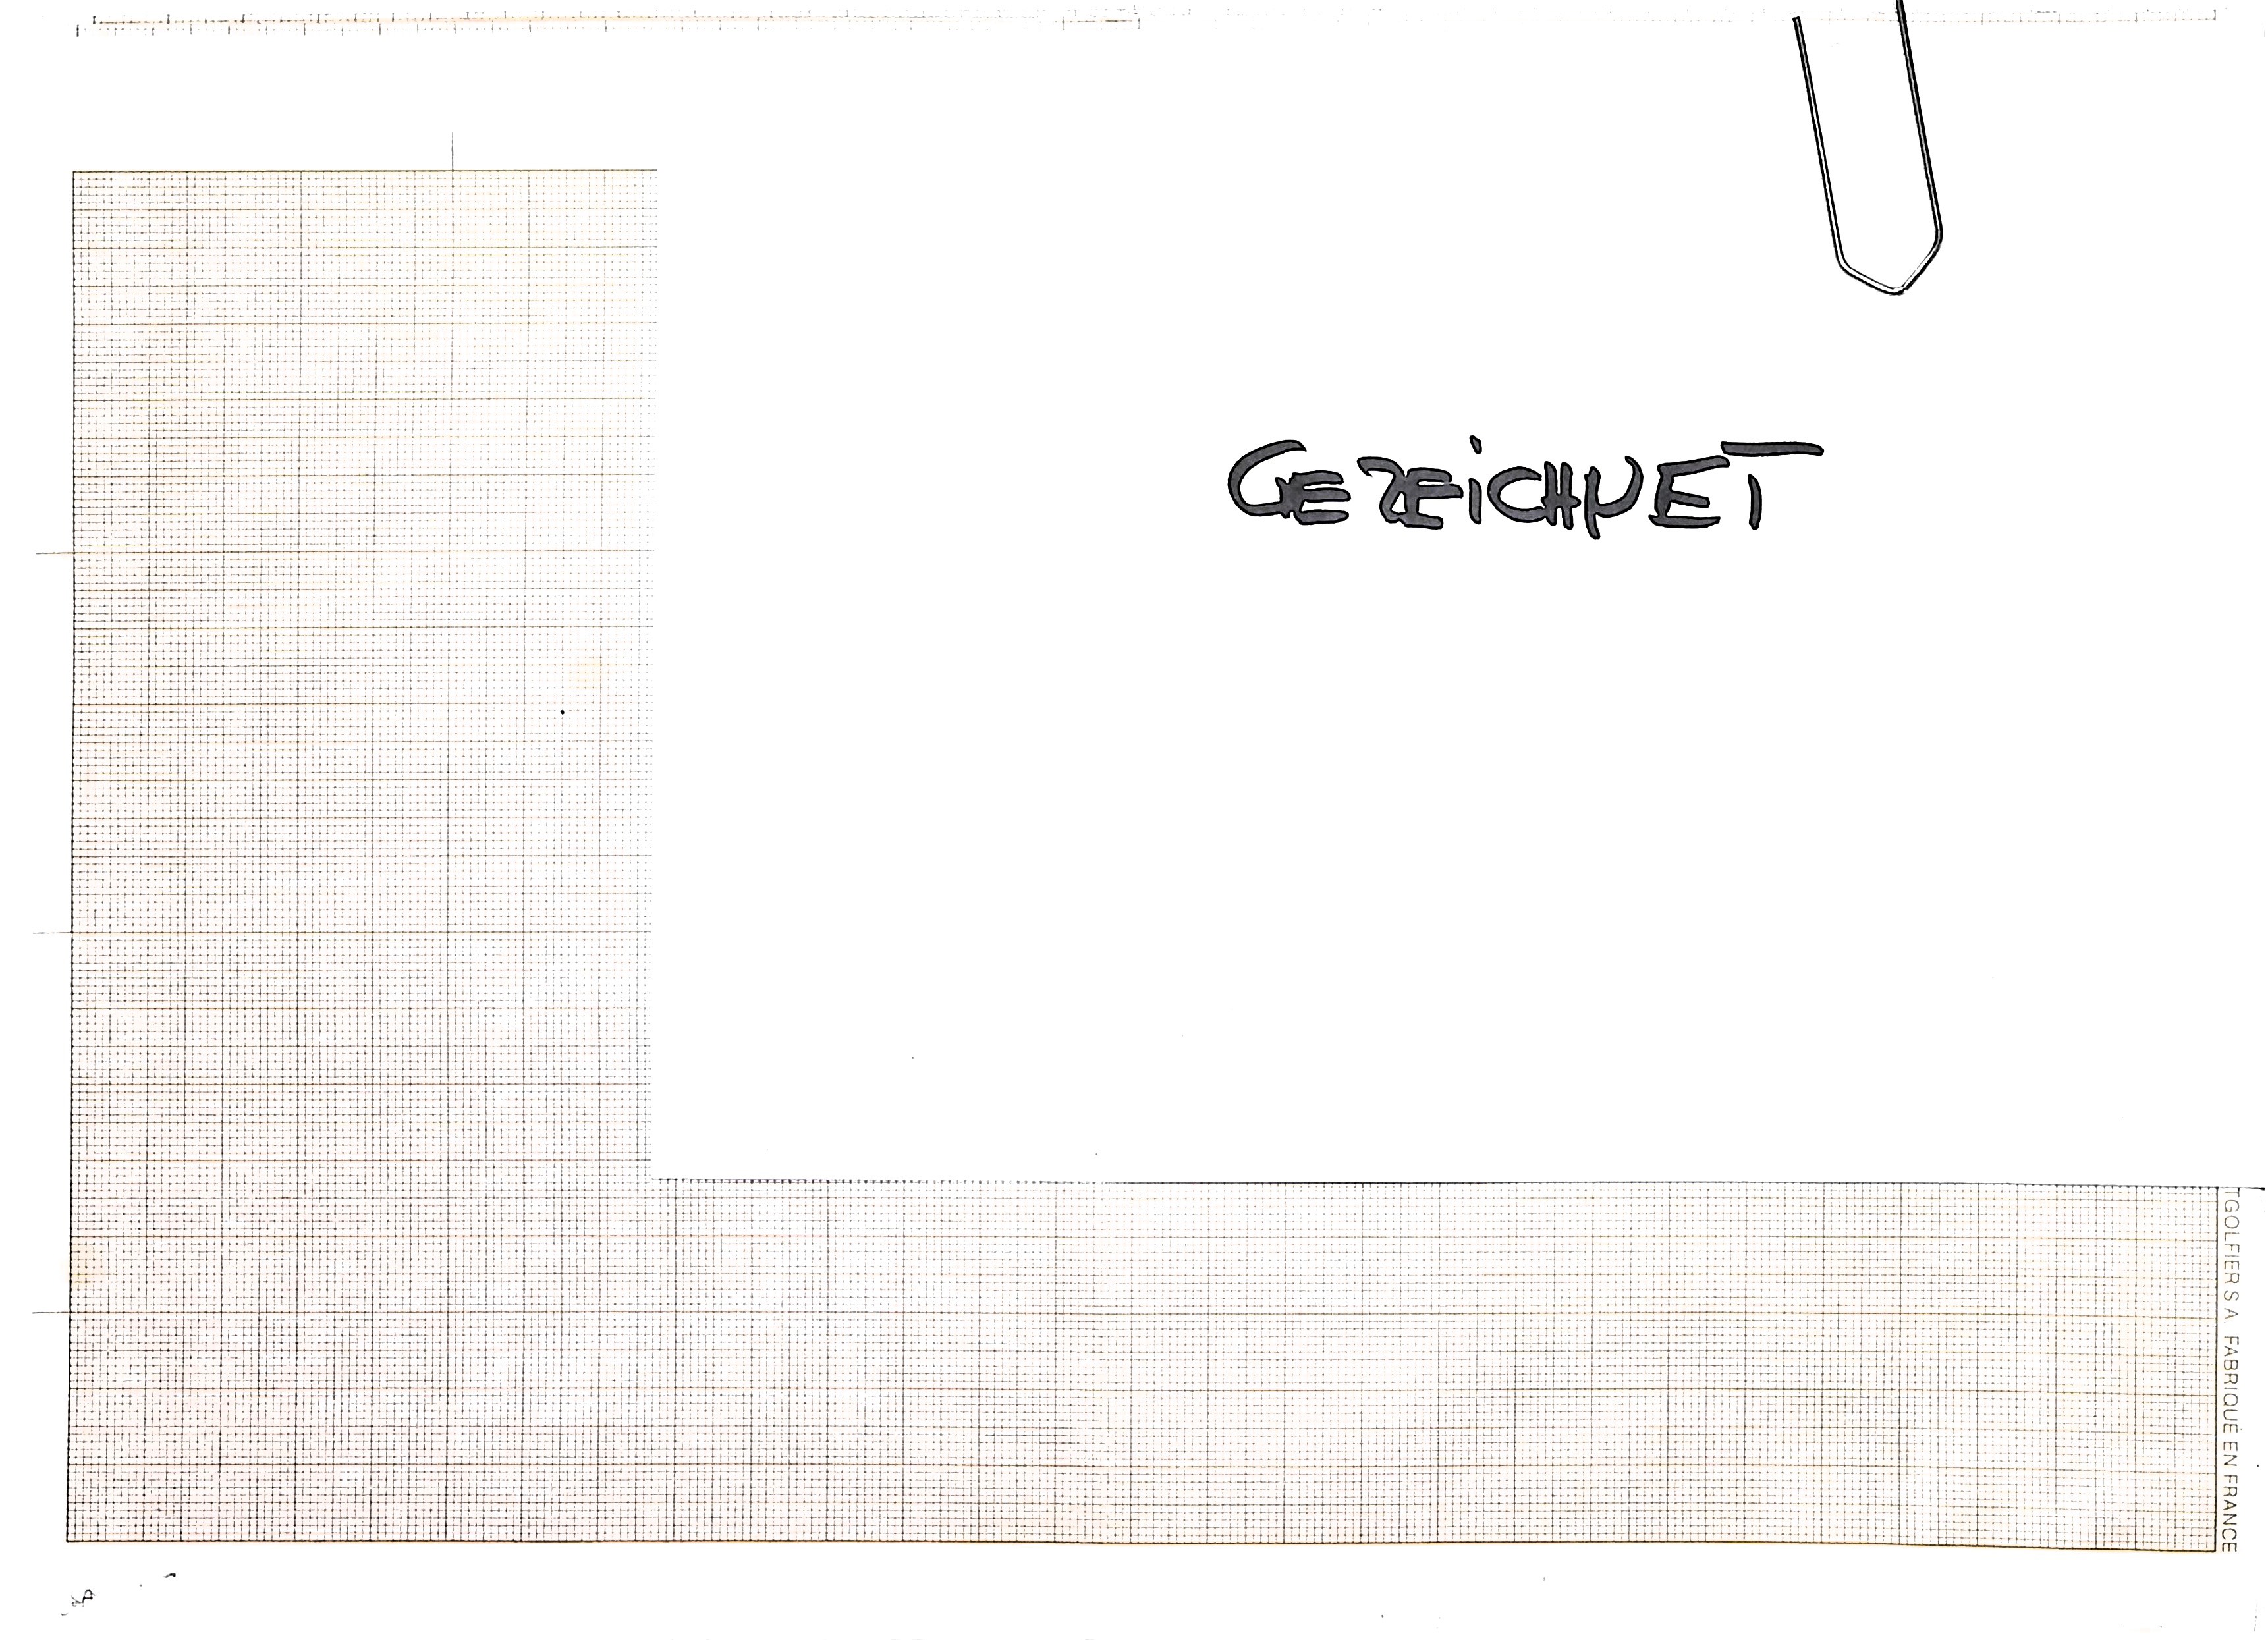 GEZEiCHNET
TGOLFIER S A FABRIQUÉ EN FRANCE